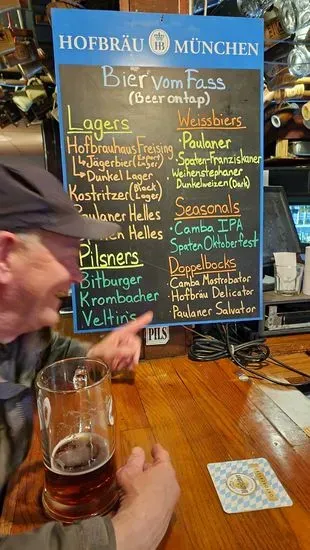 HOFBRÄU HB MÜNCHEN
Bier vom Fass
(Beer on tap)
Lagers
Hofbrauhaus Freising
↳ Jägerbier (Export Lager)
↳ Dunkel Lager
Kostritzer (Black Lager)
Paulaner Helles
Helles
Pilsners
Bitburger
Krombacher
Veltin's
Weissbiers
· Paulaner
· Spaten-Franziskaner
Weihenstephaner
Dunkelweizen (Dark)
Seasonals
· Camba IPA
Spaten Oktoberfest
Doppelbocks
· Camba Mostrobator
· Hofbräu Delicator
· Paulaner Salvator
PILS